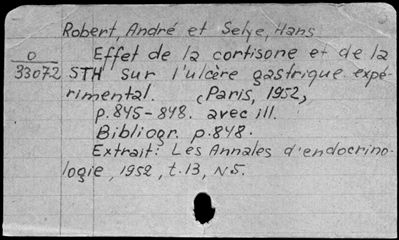 Robert, André et Selye, Hans
O Effet de la cortisone et de la
33072 STH sur l'ulcère gastrique expé-
rimental. (Paris, 1952)
p.845-848. avec ill.
Bibliogr. p.848.
Extrait: Les Annales d'endocrino-
logie, 1952, t.13, N5.